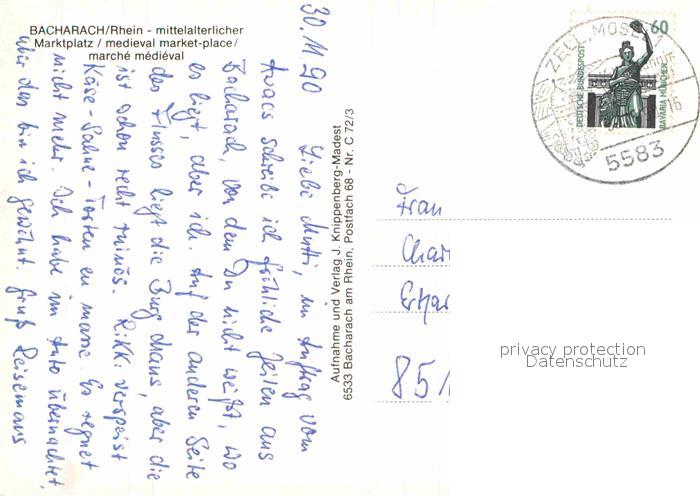 BACHARACH/Rhein - mittelalterlicher
Marktplatz / medieval market-place/
marché médiéval
30.11.90
Liebe Mutti, im Auftrag vom
schreibe ich fröhliche Zeilen aus
Bacharach, von dem Du nicht weißt, wo
es liegt, aber ich. Auf der anderen Seite
des Flusses liegt die Burg draus, aber die
ist schon recht ruinös. Rikki verspeist
Käse-Sahne-Torten en masse. Es regnet
nicht mehr. Ich habe im Auto übernachtet,
aber das bin ich gewöhnt. Gruß Reisemaus
Aufnahme und Verlag J. Knippenberg-Madest
6533 Bacharach am Rhein, Postfach 68 - Nr. C 72/3
60
DEUTSCHE BUNDESPOST
BAVARIA MÜNCHEN
ZELL, MOSEL 1
5583
Frau
Char
851
privacy protection
Datenschutz